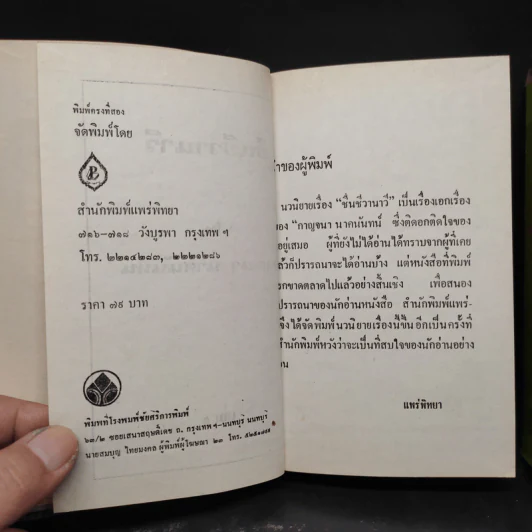 พิมพ์ครั้งที่สอง
จัดพิมพ์โดย
สำนักพิมพ์แพร่พิทยา
๗๑๖-๗๑๘ วังบูรพา กรุงเทพ ฯ
โทร. ๒๒๑๔๒๘๓, ๒๒๒๑๒๘๖
ราคา ๗๙ บาท
พิมพ์ที่โรงพิมพ์ชัยศิริการพิมพ์
๖๓/๒ ซอยเสนาสฤษดิ์เดช ถ. กรุงเทพ ฯ-นนทบุรี นนทบุรี
นายสมบุญ ไทยมงคล ผู้พิมพ์ผู้โฆษณา ๒๓ โทร.
ของผู้พิมพ์
นวนิยายเรื่อง "ชื่นชีวานาวี" เป็นเรื่องเอกเรื่อง
ของ "กาญจนา นาคนันทน์ ซึ่งติดอกติดใจของ
อยู่เสมอ ผู้ที่ยังไม่ได้อ่านได้ทราบจากผู้ที่เคย
ก็ปรารถนาจะได้อ่านบ้าง แต่หนังสือที่พิมพ์
ขาดตลาดไปแล้วอย่างสิ้นเชิง เพื่อสนอง
ปรารถนาของนักอ่านหนังสือ สำนักพิมพ์แพร่-
จึงได้จัดพิมพ์นวนิยายเรื่องนี้ขึ้นอีกเป็นครั้งที่
สำนักพิมพ์หวังว่าจะเป็นที่สบใจของนักอ่านอย่าง
แพร่พิทยา